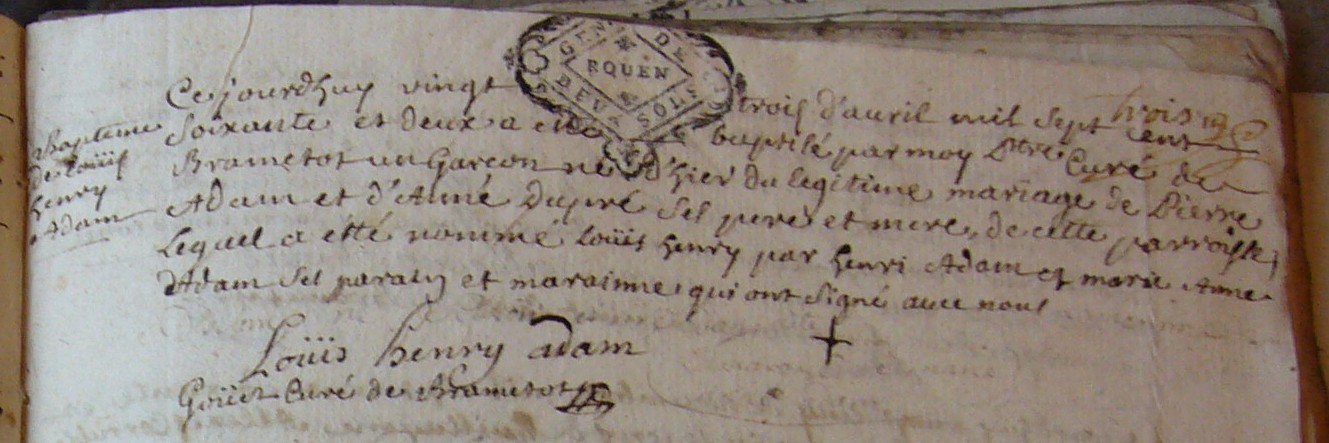 GEN DE
ROUEN
DEUX SOLS
trois
Ce jourdhuy vingt trois d'avril mil sept cent
Soixante et deux a etté baptisé par moy Ptre Curé de
Brametot un Garcon né d'hier du legitime mariage de Pierre
Adam et d'Anné Dupré ses pere et mere, de cette parroisse,
Lequel a étté nommé Loüis henry par henri Adam et marie Anne
Adam ses parain et marainne qui ont signé avec nous
Baptême
de Loüis
henry
Adam
Loüis henry adam +
Curé de Brametot